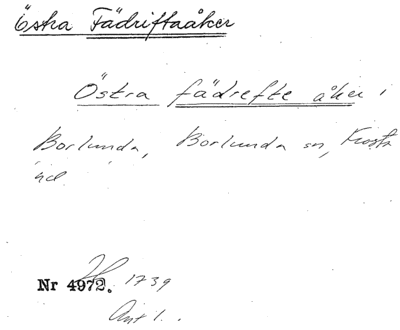 Östra Fädriftaåker
Östra fädrefte åker i
Borlunda, Borlunda sn, Frosta
hd.
Nr 4972. 1739
Akt 1.